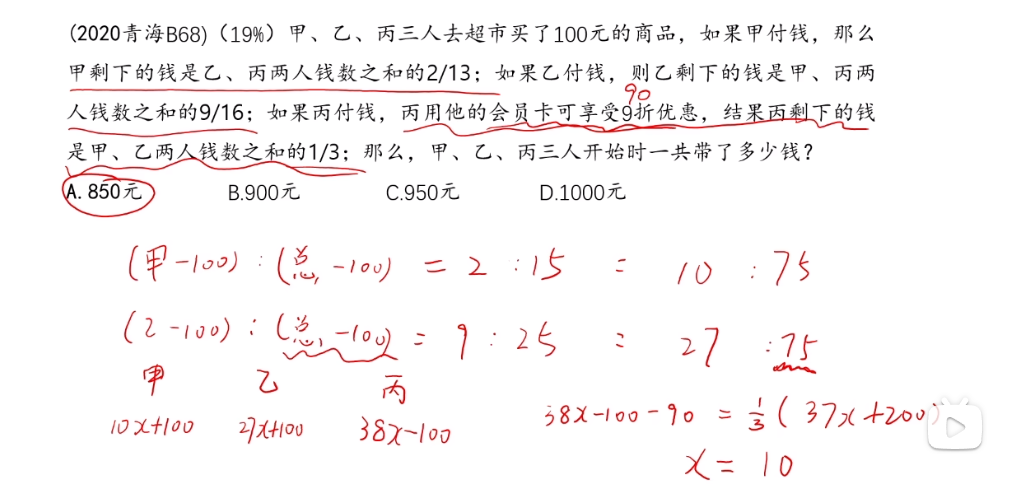 (2020青海B68)（19%）甲、乙、丙三人去超市买了100元的商品，如果甲付钱，那么
甲剩下的钱是乙、丙两人钱数之和的2/13；如果乙付钱，则乙剩下的钱是甲、丙两
90
人钱数之和的9/16；如果丙付钱，丙用他的会员卡可享受9折优惠，结果丙剩下的钱
是甲、乙两人钱数之和的1/3；那么，甲、乙、丙三人开始时一共带了多少钱？
A. 850元 B.900元 C.950元 D.1000元
(甲-100) : (总-100) = 2 : 15 = 10 : 75
(乙-100) : (总-100) = 9 : 25 = 27 : 75
甲 乙 丙
10x+100 27x+100 38x-100 38x-100-90 = 1/3 (37x+200)
x = 10